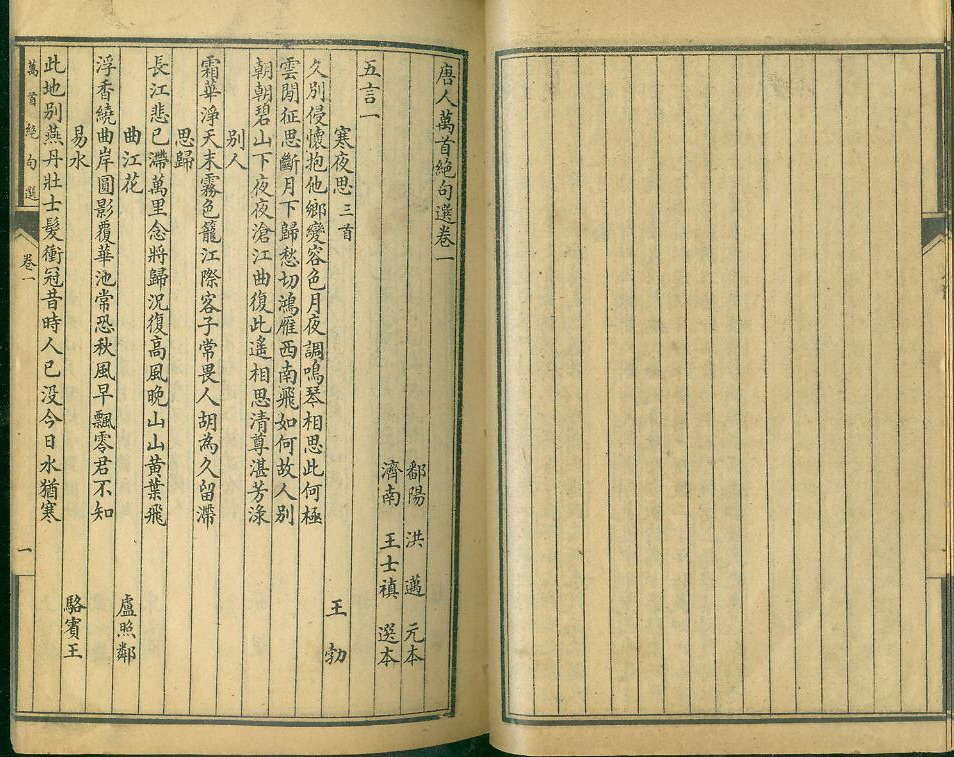 唐人萬首絕句選卷一
鄱陽 洪邁 元本
濟南 王士禛 選本
五言一
寒夜思 三首 王勃
久別侵懷抱他鄉變容色月夜調鳴琴相思此何極
雲閒征思斷月下歸愁切鴻雁西南飛如何故人別
朝朝碧山下夜夜滄江曲復此遙相思清尊湛芳淥
別人
霜華淨天末霧色籠江際客子常畏人胡為久留滯
思歸
長江悲已滯萬里念將歸況復高風晚山山黃葉飛
曲江花 盧照鄰
浮香繞曲岸圓影覆華池常恐秋風早飄零君不知
易水 駱賓王
此地別燕丹壯士髮衝冠昔時人已没今日水猶寒
萬首絕句選 卷一 一